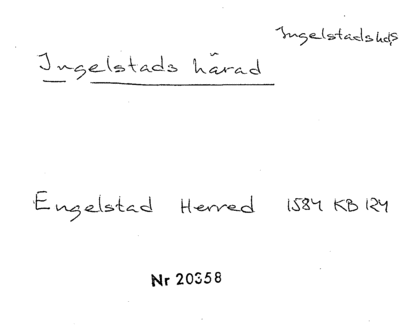 Ingelstadshds
Ingelstads härad
Engelstad Herred 1584 KB 124
Nr 20358